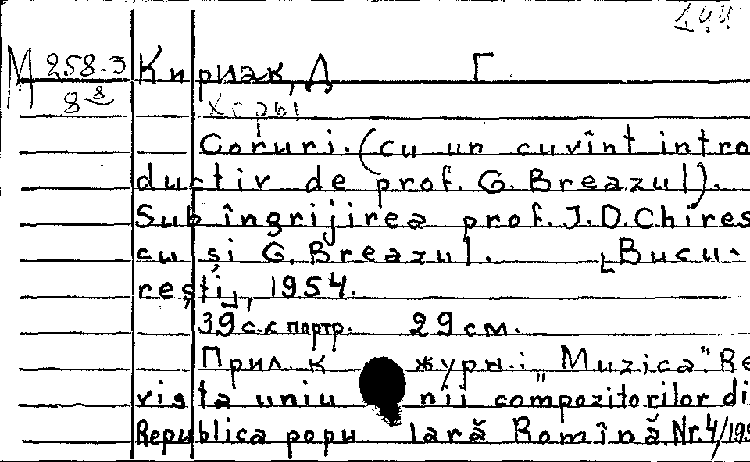 М 258-3
8-8
Кириак, Д Г.
Хоры
Coruri. (cu un cuvînt intro
ductiv de prof. G. Breazul).
Sub îngrijirea prof. I. D. Chires
cu și G. Breazul. [Bucu-
rești], 1954.
39 с. с портр. 29 см.
Прил. к журн.: "Muzica" Re
vista uniu nii compozitorilor di
Republica popu lară Romînă Nr. 4/195